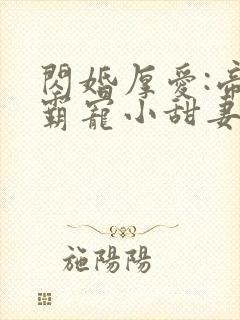 閃婚厚愛:帝
霸寵小甜妻
施陽陽